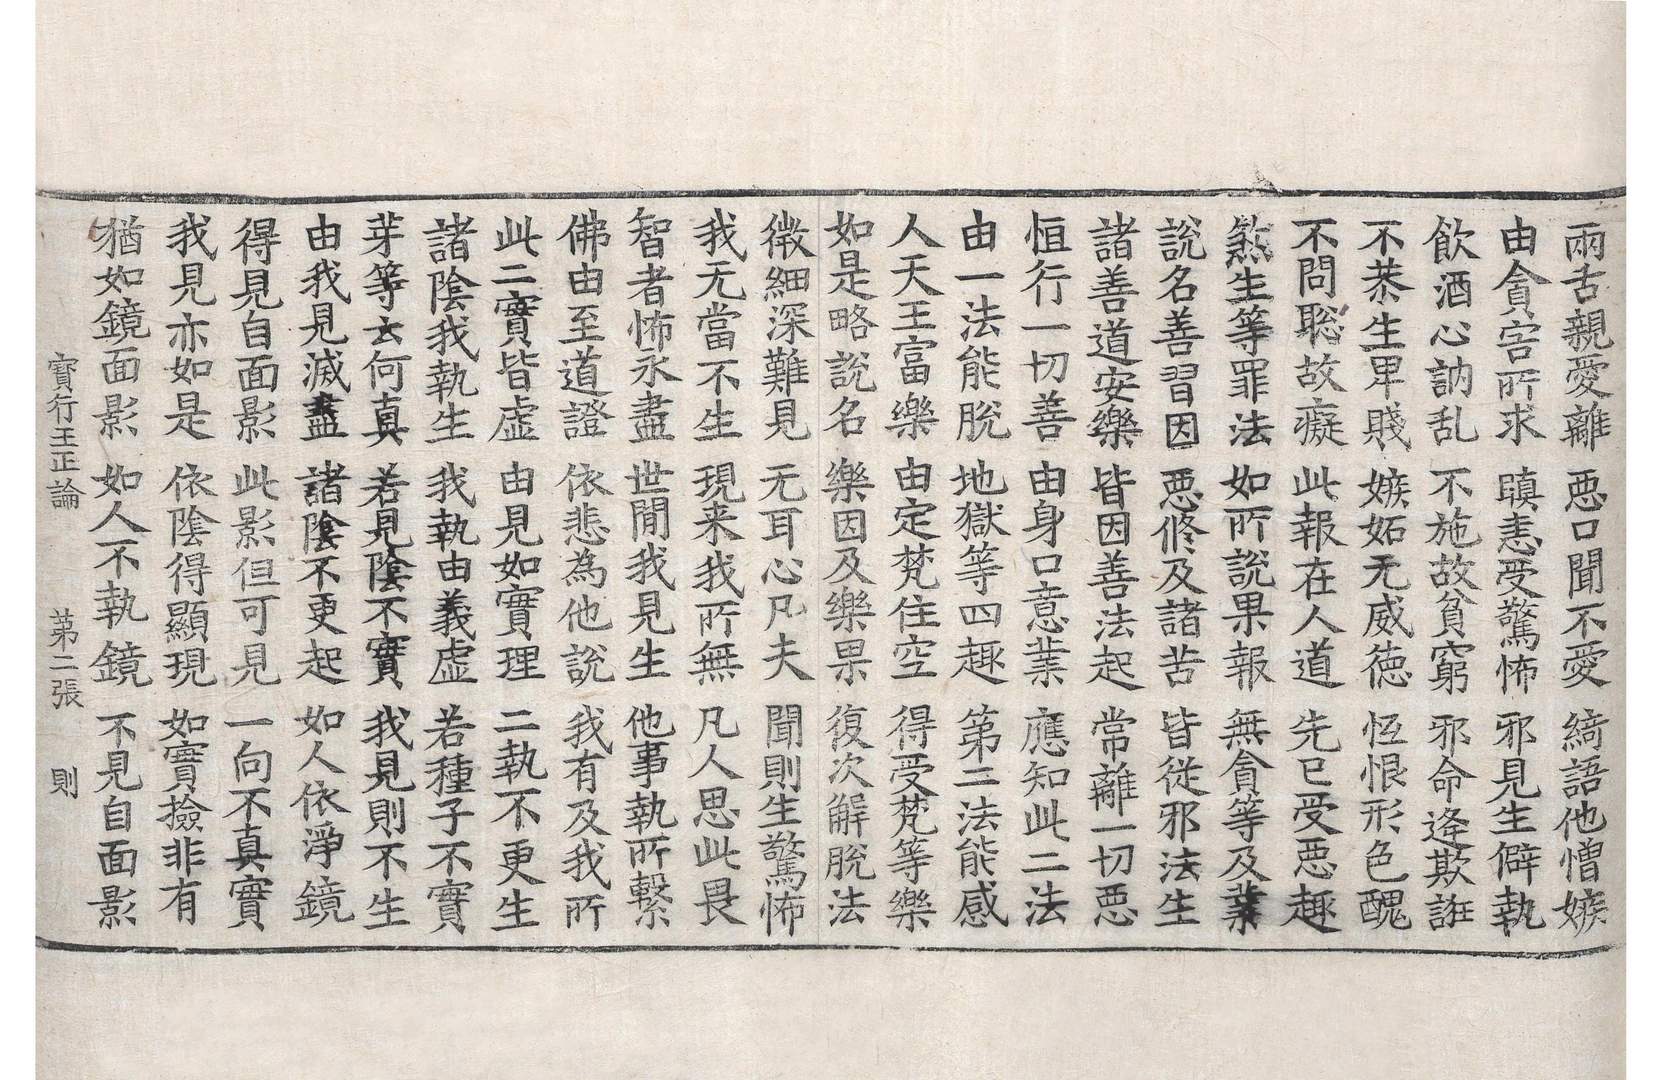 兩舌親愛離 惡口聞不愛 綺語他憎嫉
由貪害所求 瞋恚受驚怖 邪見生僻執
飲酒心訥乱 不施故貧窮 邪命逢欺誑
不恭生卑賤 嫉妬无威德 恆恨形色醜
不問聡故癡 此報在人道 先已受惡趣
煞生等罪法 如所說果報 無貪等及業
說名善習因 惡修及諸苦 皆從邪法生
諸善道安樂 皆因善法起 常離一切惡
恒行一切善 由身口意業 應知此二法
由一法能脫 地獄等四趣 第二法能感
人天王富樂 由定梵住空 得受梵等樂
如是略說名 樂因及樂果 復次解脫法
微細深難見 无耳心凡夫 聞則生驚怖
我无當不生 現来我所無 凡人思此畏
智者怖永盡 世閒我見生 他事執所繫
佛由至道證 依悲為他說 我有及我所
此二實皆虛 由見如實理 二執不更生
諸陰我執生 我執由義虛 若種子不實
芽等云何真 若見陰不實 我見則不生
由我見滅盡 諸陰不更起 如人依淨鏡
得見自面影 此影但可見 一向不真實
我見亦如是 依陰得顯現 如實撿非有
猶如鏡面影 如人不執鏡 不見自面影
寶行王正論 第二張 則